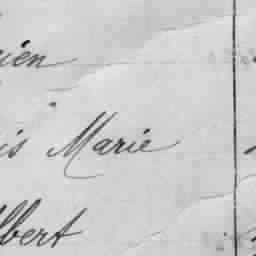 ien
is Marie
lbert